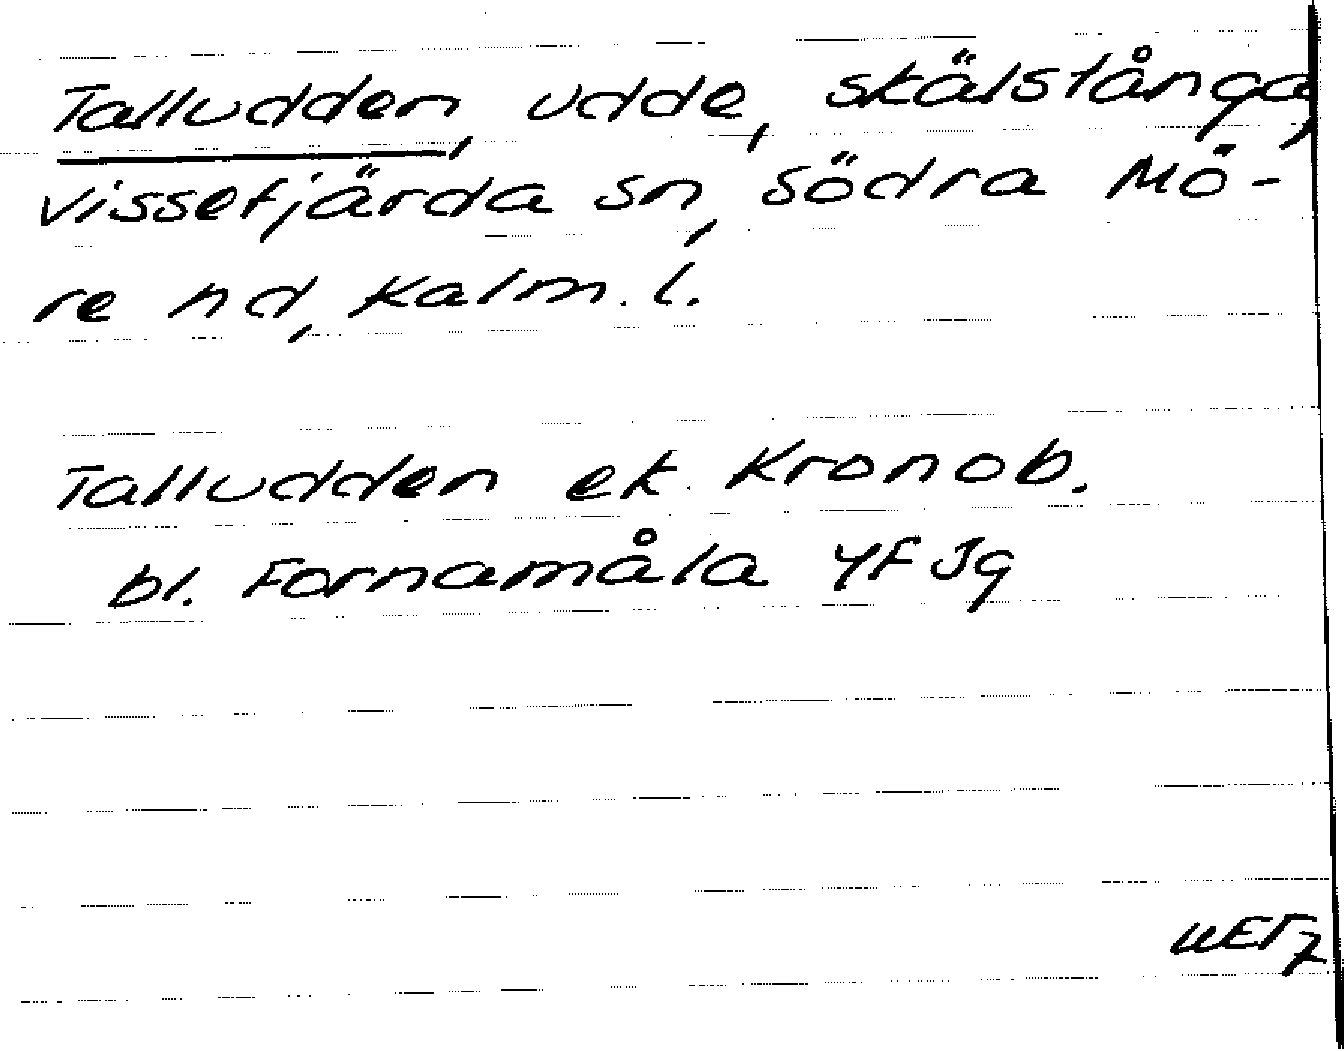 Talludden, udde, skälstånga,
Vissefjärda sn, södra Mö-
re hd, Kalm. l.
Talludden ek. Kronob.
bl. Fornamåla 4F Jg